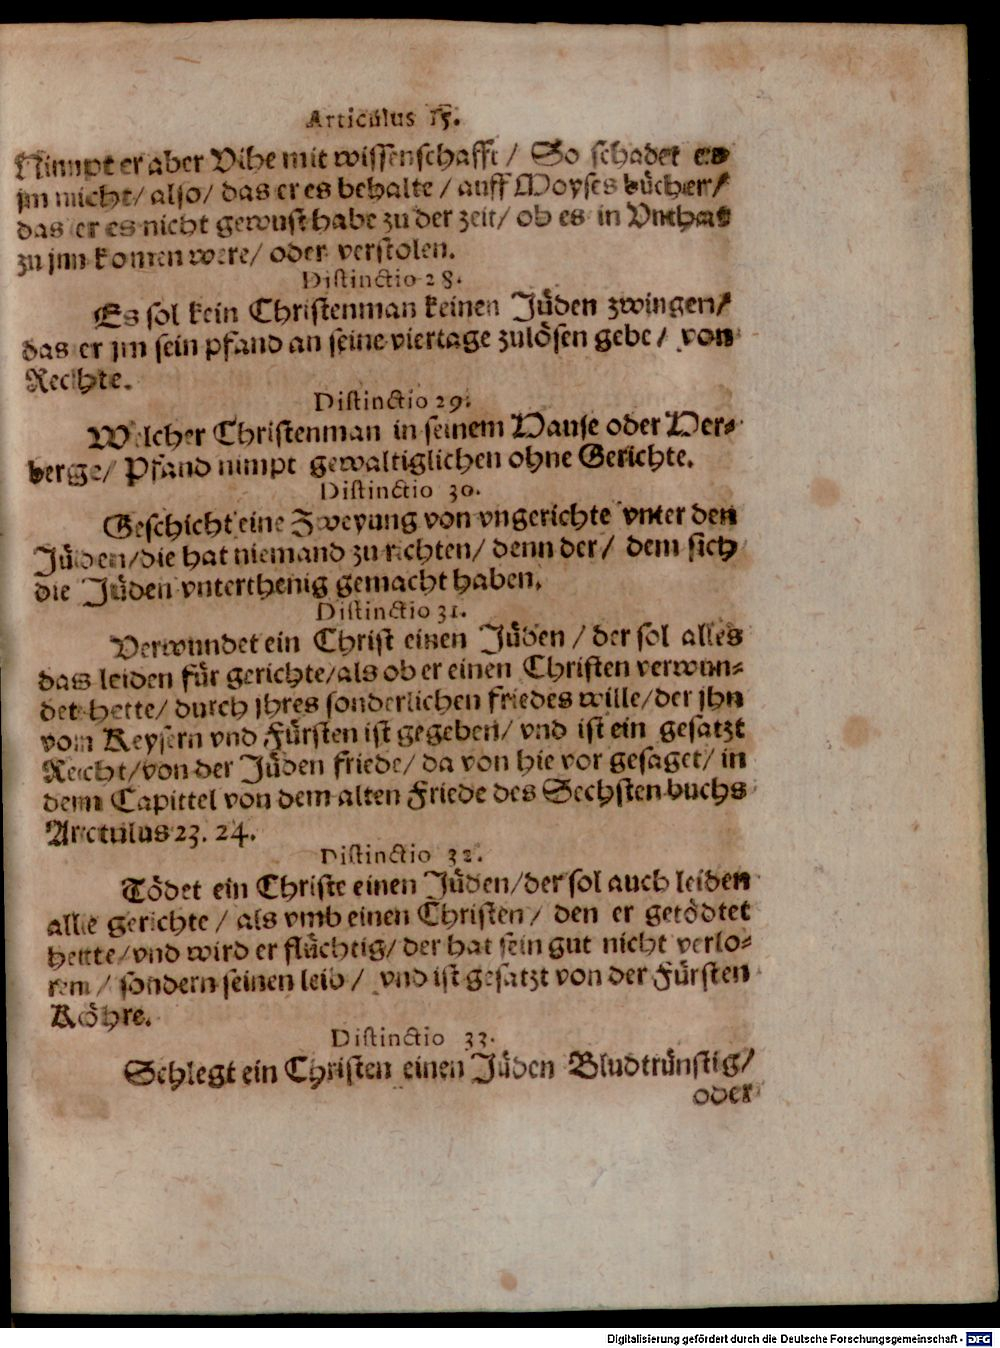 Articulus 15.
Nimpt er aber Vihe mit wissenschafft / So schadet es
jm nicht/ also/ das er es behalte / auff Moyses bücher/
das er es nicht gewust habe zu der zeit/ ob es in Vnthat
zu jnn komen were/ oder verstolen.
Distinctio 28.
Es sol kein Christenman keinen Jüden zwingen/
das er jm sein pfand an seine viertage zulösen gebe / von
Rechte.
Distinctio 29.
Welcher Christenman in seinem Hause oder Her-
berge/ Pfand nimpt gewaltiglichen ohne Gerichte.
Distinctio 30.
Geschicht eine Zweyung von vngerichte vnter den
Jüden/die hat niemand zu richten/ denn der/ dem sich
die Jüden vnterthenig gemacht haben.
Distinctio 31.
Verwundet ein Christ einen Jüden / der sol alles
das leiden für gerichte/als ob er einen Christen verwun-
det hette/ durch jhres sonderlichen friedes wille/der jhn
vom Keysern vnd Fürsten ist gegeben/ vnd ist ein gesatzt
Recht/von der Jüden friede/ da von hie vor gesaget/ in
dem Capittel von dem alten Friede des Sechsten buchs
Arctulus 23. 24.
Distinctio 32.
Tödet ein Christe einen Jüden/der sol auch leiden
alle gerichte / als vmb einen Christen / den er getödtet
hette/vnd wird er flüchtig/ der hat sein gut nicht verlo-
ren / sondern seinen leib / vnd ist gesatzt von der Fürsten
Köhre.
Distinctio 33.
Schlegt ein Christen einen Jüden Bludtrünstig/
oder
Digitalisierung gefördert durch die Deutsche Forschungsgemeinschaft - DFG